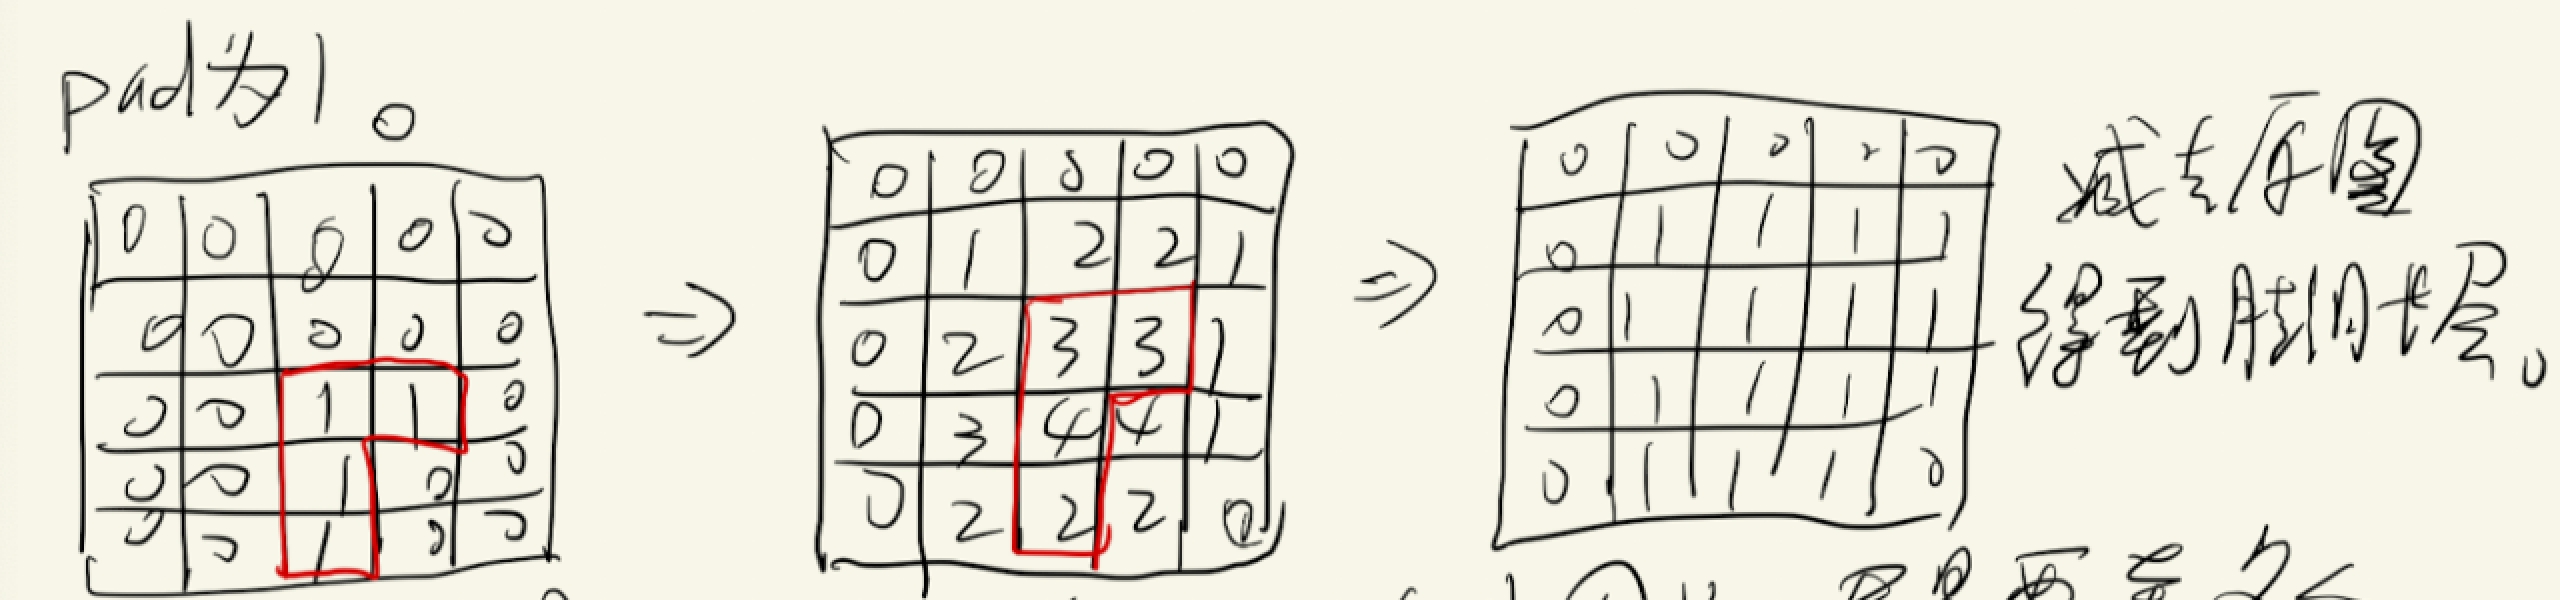 pad为1。
0 0 0 0 0
0 0 0 0 0
0 0 1 1 0
0 0 1 0 0
0 0 1 0 0
⇒
0 0 0 0 0
0 1 2 2 1
0 2 3 3 1
0 3 4 4 1
0 2 2 2 0
⇒
0 0 0 0 0
0 1 1 1 1
0 1 1 1 1
0 1 1 1 1
0 1 1 1 0
减去原图
得到膨胀层。